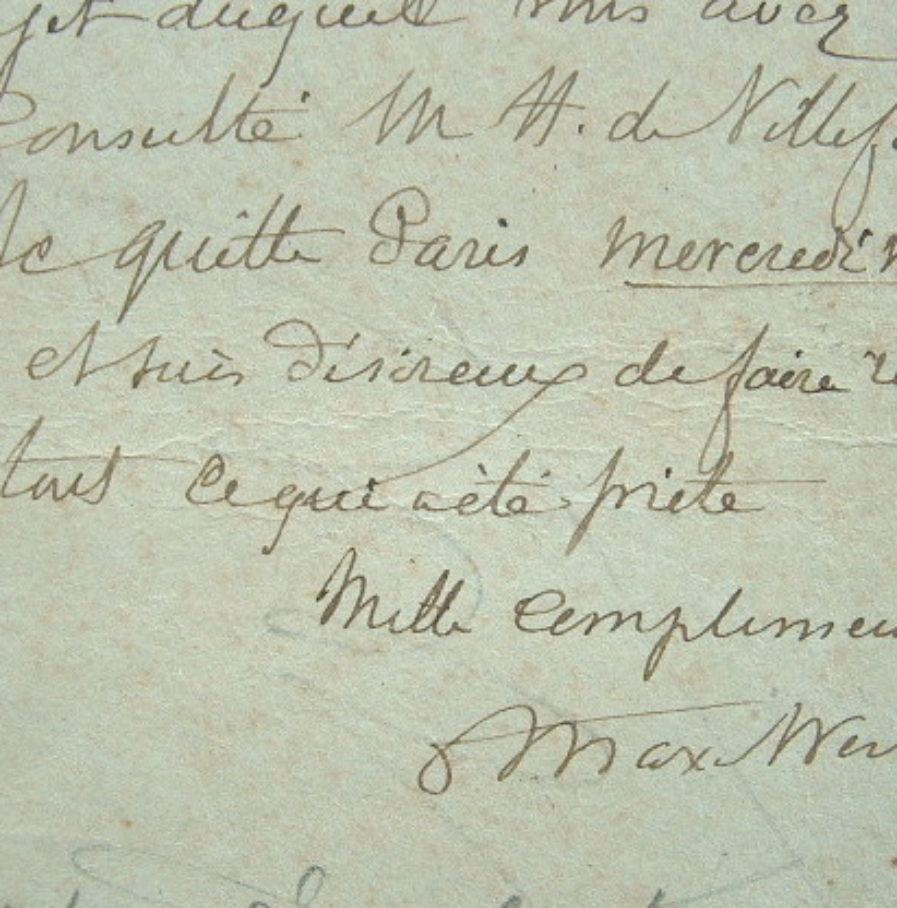 jet duquel vous avez
Consulté M H. de Villef
Je quitte Paris mercredi
et suis désireux de faire
tout ce qui a été prêté
Mille complimen
Max Wer